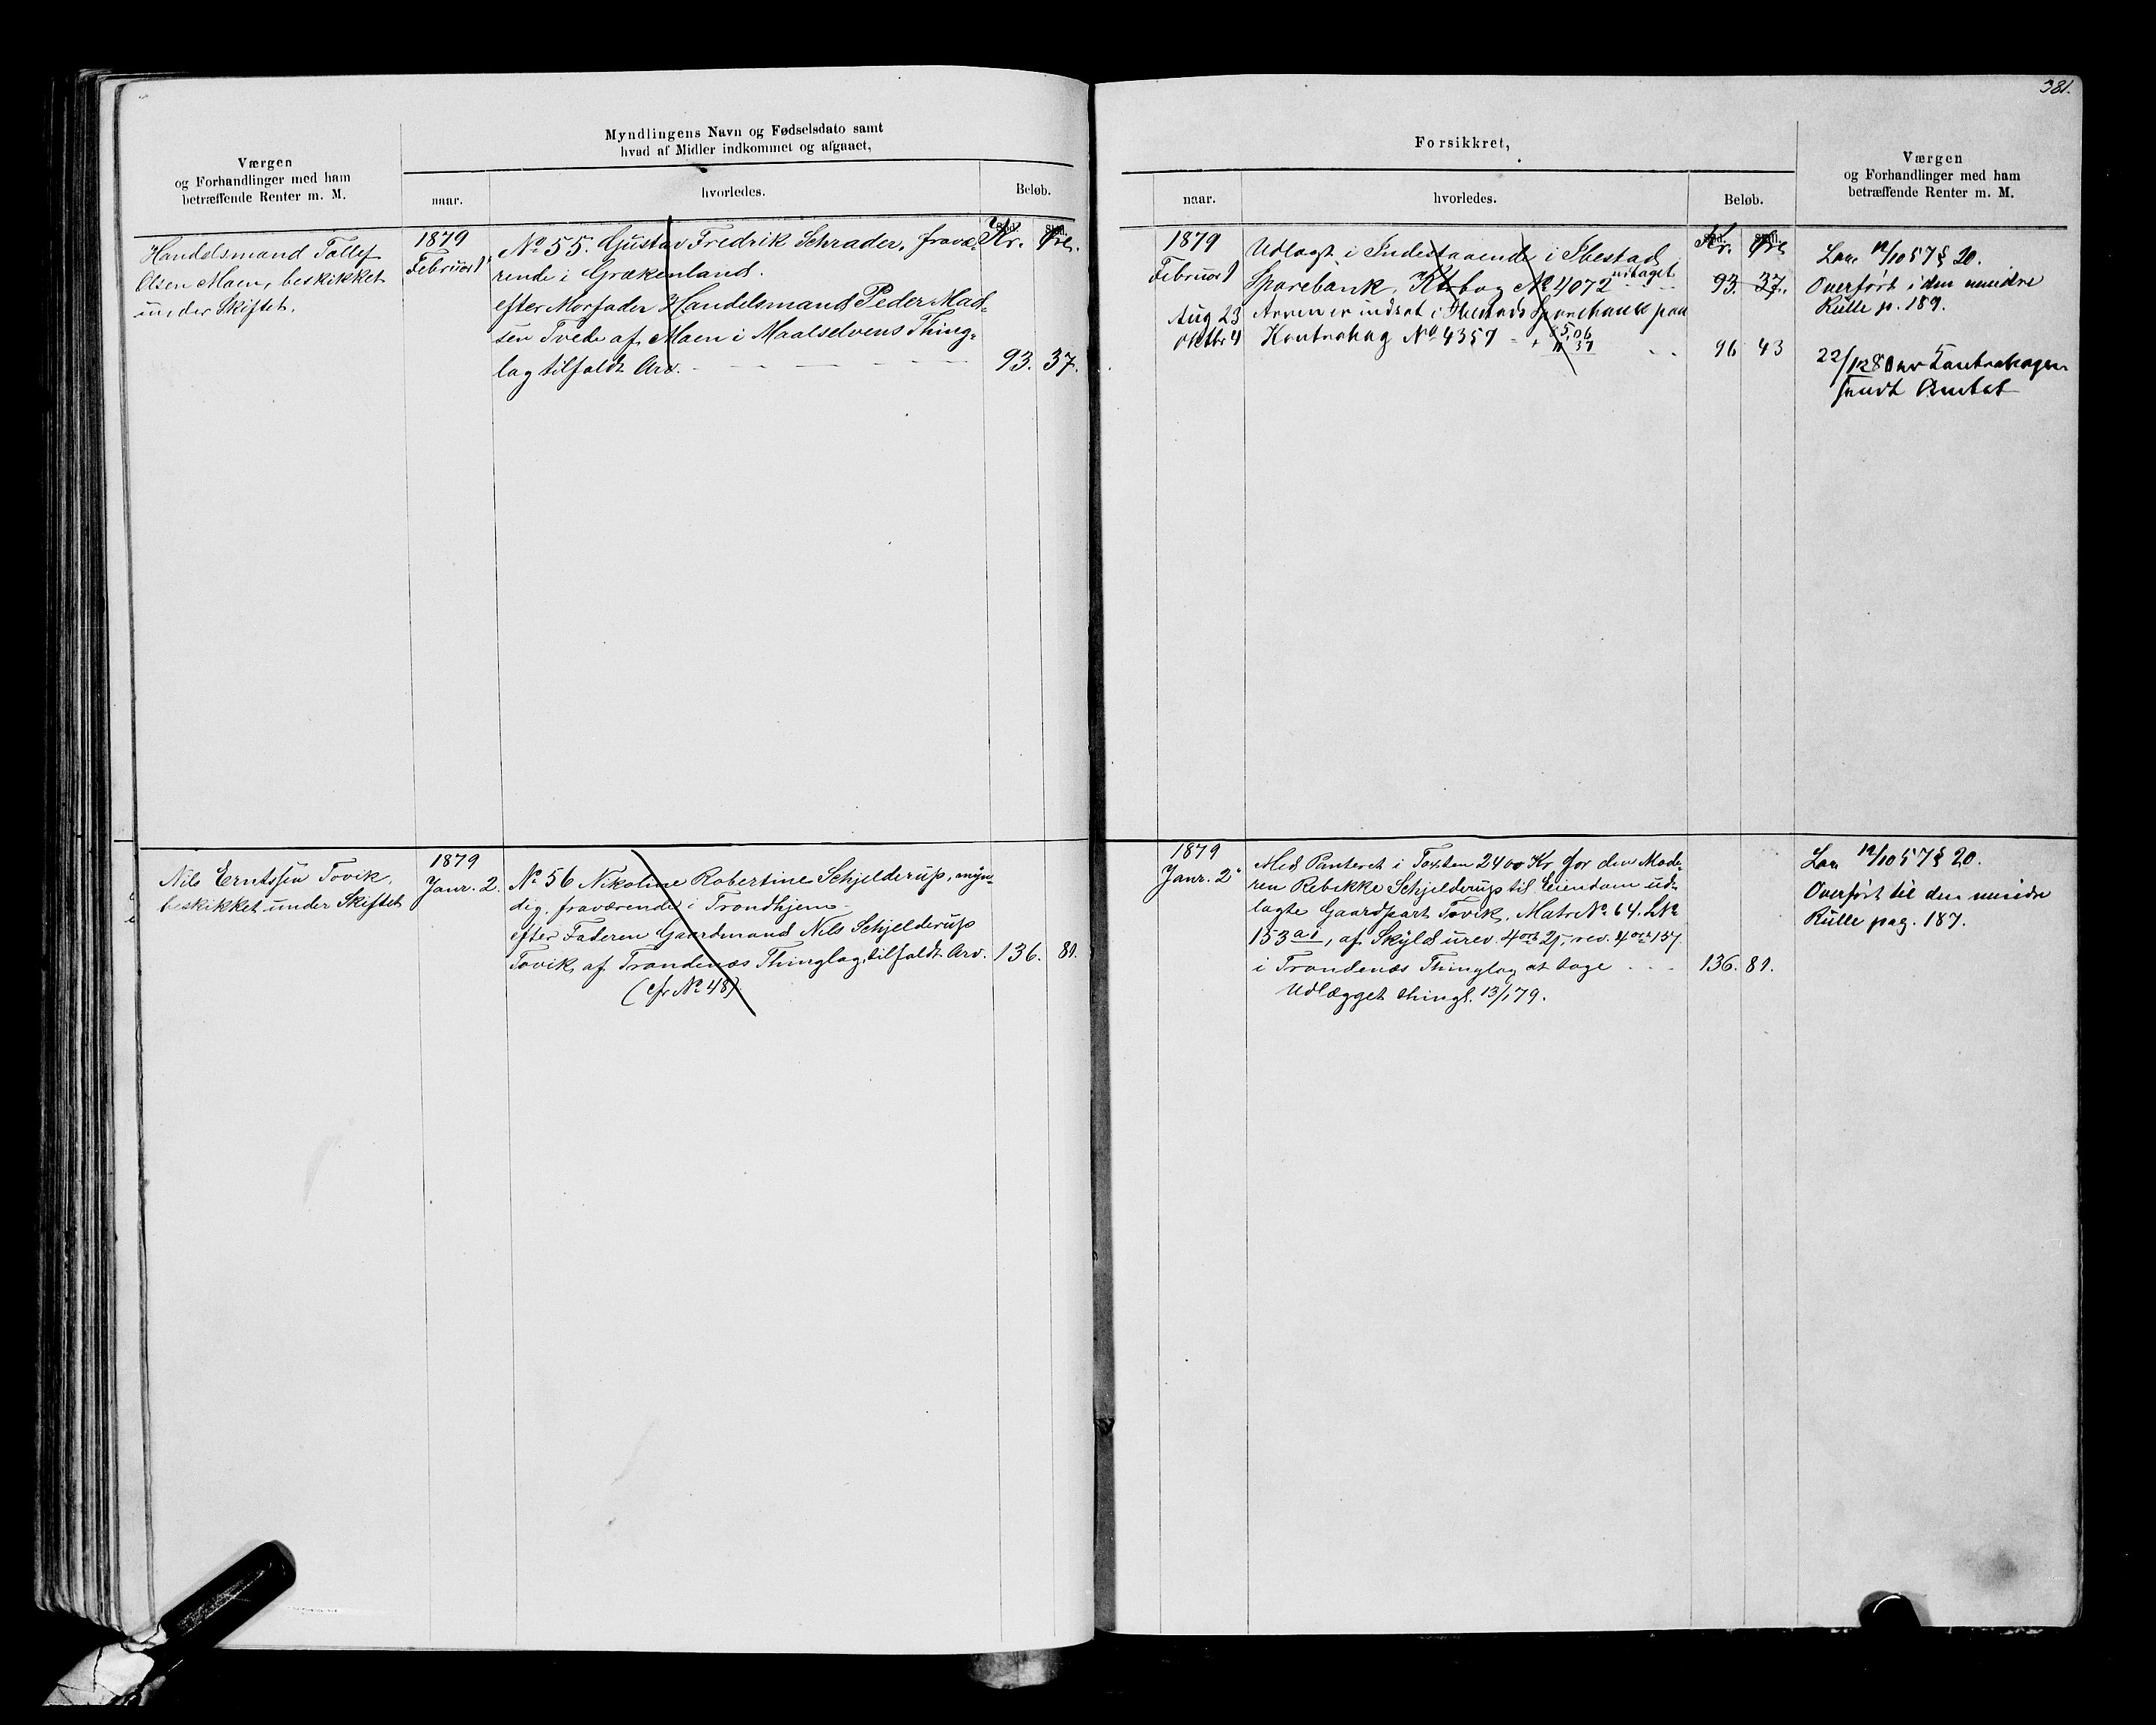 381.
Værgen
og Forhandlinger med ham
betræffende Renter m. M.
Myndlingens Navn og Fødselsdato samt
hvad af Midler indkommet og afgaaet,
naar.
hvorledes.
Beløb.
Handelsmand Tollef
Olsen Moen, beskikket
under Skiftet.
1879
Februar 1
No 55. Gustav Fredrik Schrader, fravæ-
rende i Grækenland.
efter Morfader Handelsmand Peder Mad-
sen Tvede af Moen i Maalselvens Thing-
lag tilfaldt Arv.
Kr. Øre.
93. 37.
Nils Erntssen Tovik,
beskikket under Skiftet
1879
Janr. 2.
No 56 Nikoline Robertine Schjelderup, myn-
dig, fraværende i Trondhjem
efter Faderen Gaardmand Nils Schjelderup
Tovik, af Trondenæs Thinglag, tilfaldt Arv. 136. 81.
(cfr No 48)
Forsikkret,
naar.
hvorledes.
Beløb.
Værgen
og Forhandlinger med ham
betræffende Renter m. M.
1879
Februar 1
Udlagt i Indestaaende i Ibestad
Sparebank, Ktrbog No 4072 udtaget
Kr. Øre
93. 37.
Aug 23
Oktbr 4
Arven er indsat i Ibestads Sparebank paa
Kontrabog No 4357
96 43
Lov 12/10 57 § 20.
Overført i den mindre
Rulle p. 189.
22/12 80 er Contrabogen
sendt Amtet
1879
Janr. 2
Med Panteret i Taxten 2400 Kr. for den Mode-
ren Rebekke Schjelderup til Eiendom ud-
lagte Gaardpart Tovik, Matr No. 64. LNo
153 a1, af Skyld urev. 4 ort 2 , rev. 4 ort 1
i Trondenæs Thinglag at tage
136. 81.
Udlægget thingl. 13/1 79.
Lov 12/10 57 § 20.
Overført til den mindre
Rulle pag. 187.